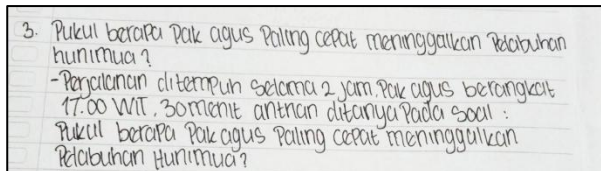 3. Pukul berapa Pak agus Paling cepat meninggalkan Pelabuhan
hunimua?
-Perjalanan ditempuh selama 2 jam, Pak agus berangkat
17.00 WIT, 30 menit antrian ditanya Pada soal :
Pukul berapa Pak agus Paling cepat meninggalkan
Pelabuhan Hunimua?